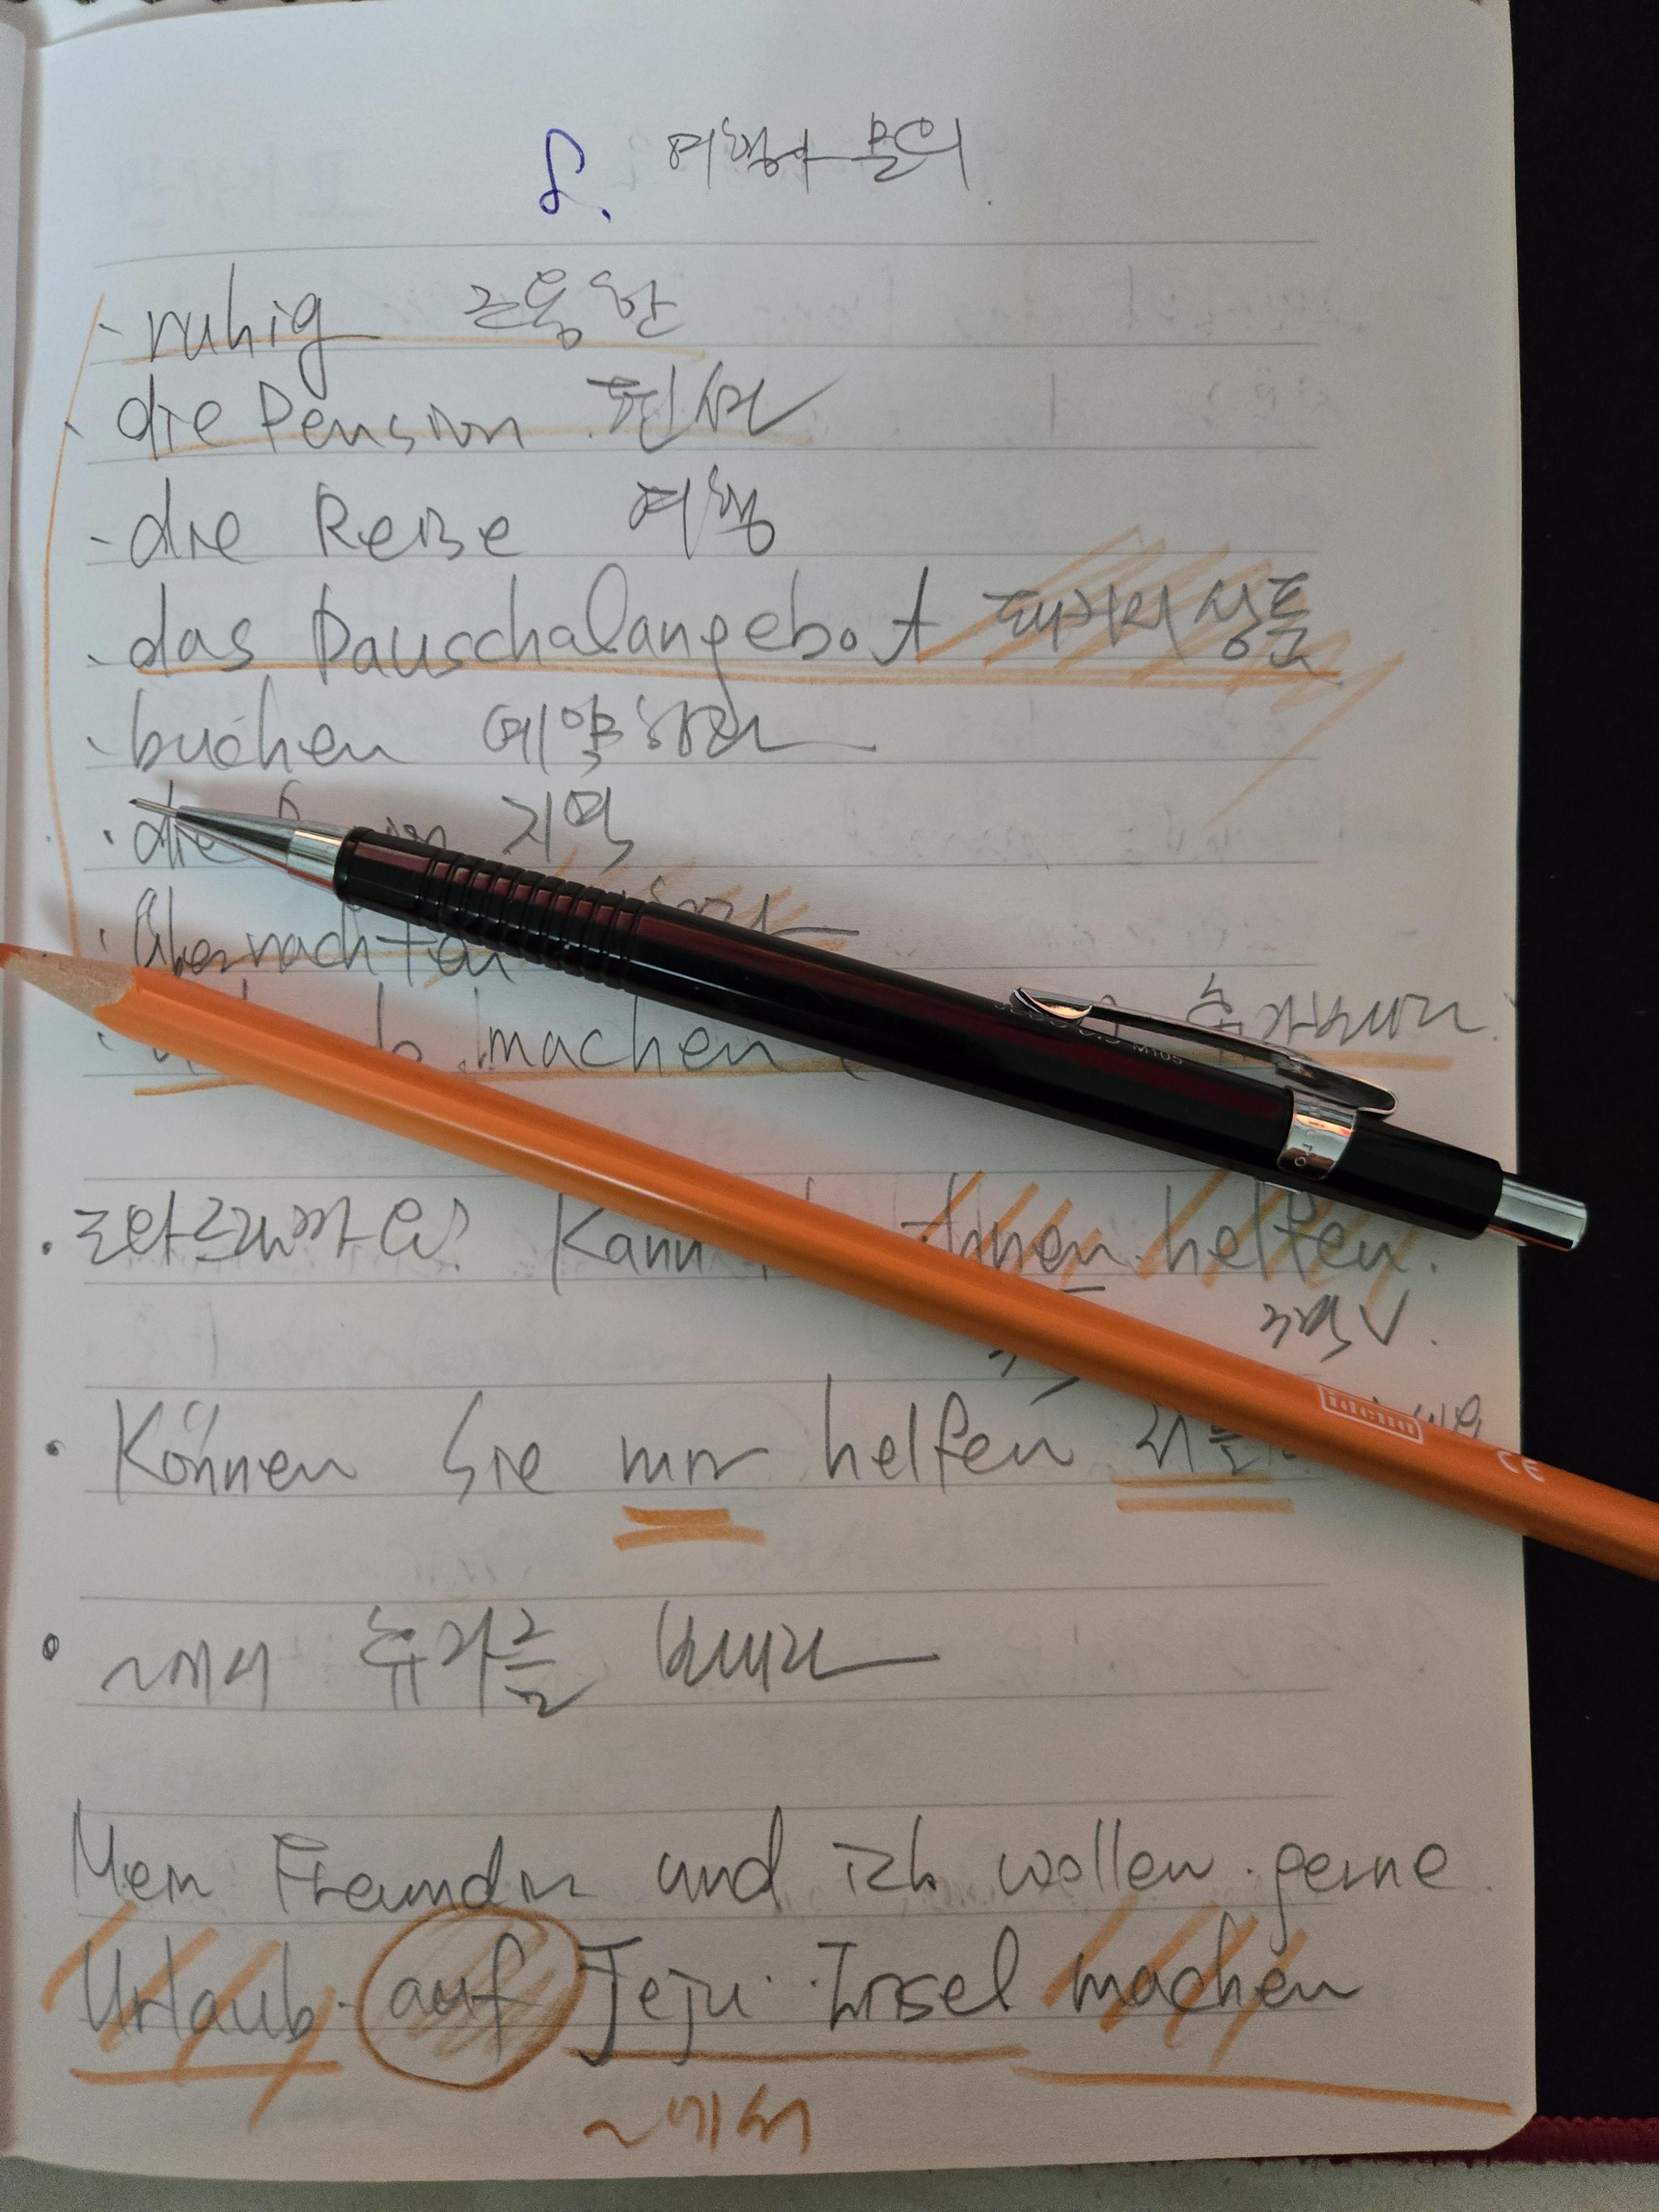 8. 여행사 문의
- ruhig 조용한
- die Pension 펜션
- die Reise 여행
- das Pauschalangebot 패키지 상품
- buchen 예약하다
· die 지역
· übernachten
· machen 휴가보내다.
· 도와드릴까요? Kann Ihnen helfen.
3격 V.
· Können Sie mir helfen
· ~에서 휴가를 보내다
Mein Freundin und ich wollen gerne
Urlaub auf Jeju Insel machen
~에서
M105
CE